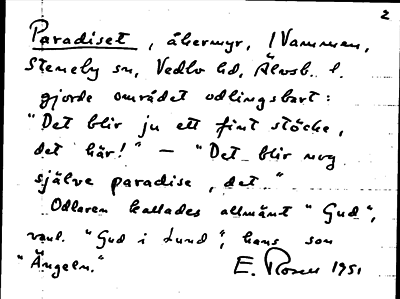 2
Paradiset, åkermyr, i Vammen,
Steneby sn, Vedbo hd, Älvsb. l.
gjorde området odlingsbart:
"Det blir ju ett fint stöcke,
det här!" – "Det blir nog
själve paradise, det."
Odlaren kallades allmänt "Gud",
vanl. "Gud i Lund", hans son
"Ängeln." E. Rosen 1951